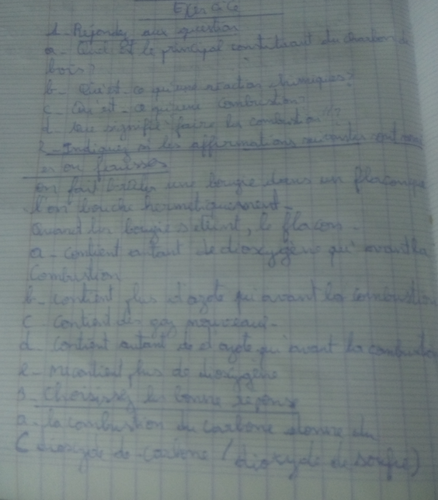 Exercice
1. Répondez aux question
a - Quel est le principal constituant du charbon de
bois?
b - Qu'est ce qu'une réaction chimiques?
c - Qu'est - ce qu'une combustion?
d - que signifie faire la combustion"?
2 - Indiquez si les affirmations suivantes sont vraies
ou fausses
on fait brûler une bougie dans un flacon que
l'on bouche hermétiquement.
Quand la bougie s'éteint, le flacon -
a - contient autant de dioxygène qu'avant la
Combustion
b - contient plus d'azote qu'avant la combustion
c contient des gaz nouveaux -
d contient autant de d'azote qu'avant la combustion
e - ne contient plus de dioxygène
3 - Choisissez la bonne réponse
a - la combustion du carbone donne du
( dioxyde de carbone / dioxyde de soufre)